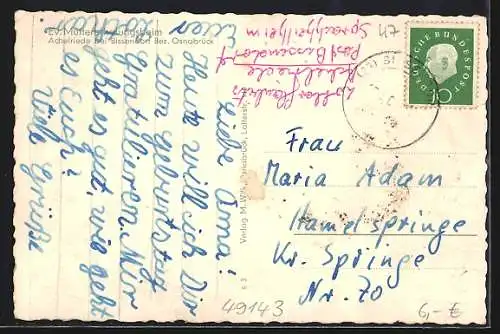 Ev. Müttergenesungsheim
Achelriede bei Bissendorf Bez. Osnabrück
Liebe Oma!
Heute will ich Dir
zum Geburtstag
gratulieren. Mir
geht es gut, wie geht
es Euch?
Viele Grüße
Euer
Lothar
Lothar
Achelriede
Post Bissendorf
Sprachheilheim
47
DEUTSCHE BUNDESPOST
10
Frau
Maria Adam
Hamelspringe
Kr. Springe
Nr. 70
Verlag M.
49143
6,- €